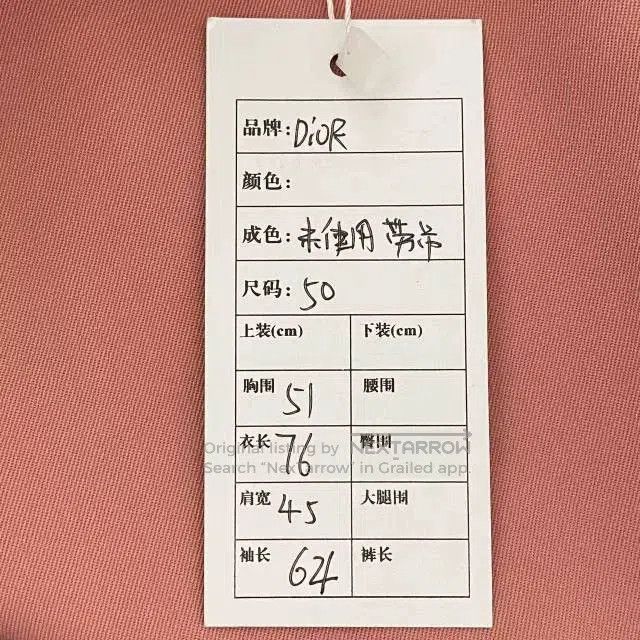 品牌: DiOR
颜色:
成色: 未使用 带吊卡
尺码: 50
上装(cm) 下装(cm)
胸围 51 腰围
衣长 76 臀围
Original listing by NEXTARROW
Search "NexTarrow" in Grailed app.
肩宽 45 大腿围
袖长 64 裤长